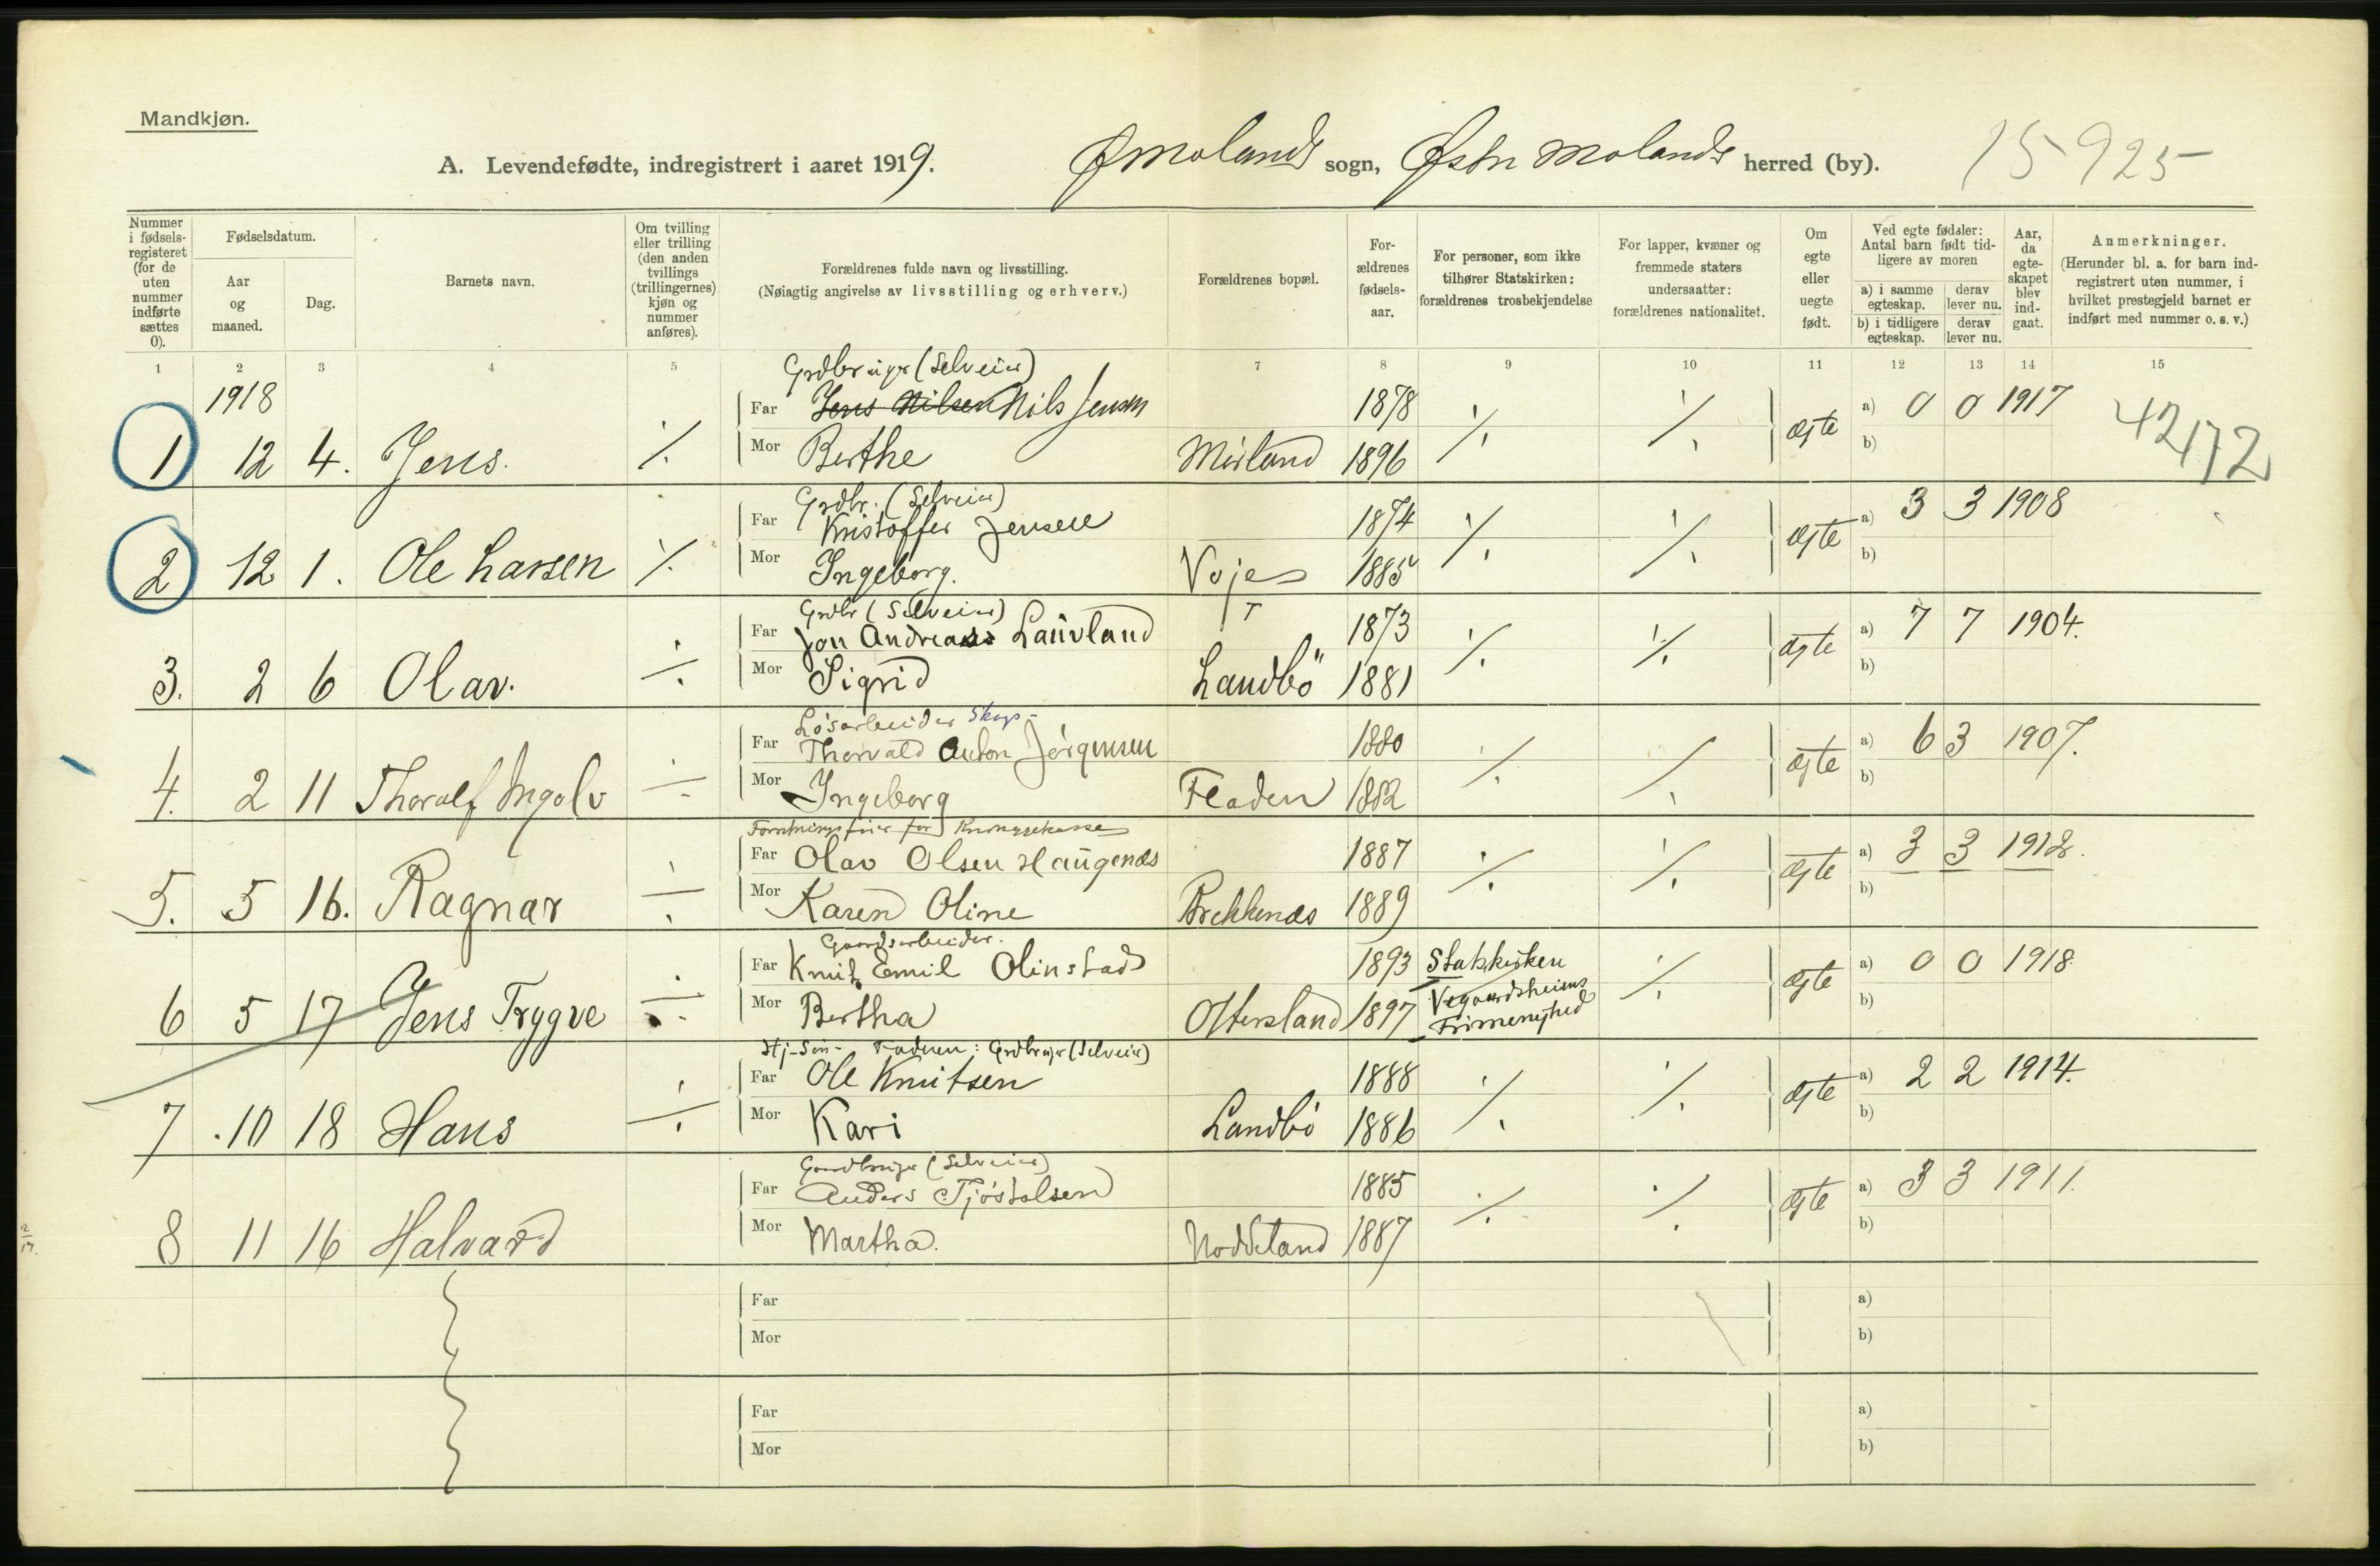 Mandkjøn.
A. Levendefødte, indregistrert i aaret 1919. Ø Molands sogn, Østre Molands herred (by). 15925
Nummer i fødselsregisteret (for de uten nummer indførte sættes 0).
Fødselsdatum.
Aar og maaned.
Dag.
Barnets navn.
Om tvilling eller trilling (den anden tvillings (trillingernes) kjøn og nummer anføres).
Forældrenes fulde navn og livsstilling.
(Nøiagtig angivelse av livsstilling og erhverv.)
Forældrenes bopæl.
Forældrenes fødselsaar.
For personer, som ikke tilhører Statskirken: forældrenes trosbekjendelse
For lapper, kvæner og fremmede staters undersaatter: forældrenes nationalitet.
Om egte eller uegte født.
Ved egte fødsler: Antal barn født tidligere av moren
a) i samme egteskap. derav lever nu.
b) i tidligere egteskap. derav lever nu.
Aar, da egteskapet blev indgaat.
Anmerkninger.
(Herunder bl. a. for barn indregistrert uten nummer, i hvilket prestegjeld barnet er indført med nummer o. s. v.)
1 2 3 4 5 7 8 9 10 11 12 13 14 15
1918
Grdbruger (Selveier)
Far Jens Nilsen Nils Jensen 1878 a) 0 0 1917
1 12 4. Jens. ⁒ Mor Berthe 1896 ⁒ ⁒ ægte b) 42172
Grdbr. (Selveier)
Far Kristoffer Jensen 1874 a) 3 3 1908
2 12 1. Ole Larsen ⁒ Mor Ingeborg. Voje 1885 ⁒ ⁒ ægte b)
Grdbr (Selveier)
Far Jon Andreas Laŭvland 1873 a) 7 7 1904.
3. 2 6 Olav. ⁒ Mor Sigrid Landbö 1881 ⁒ ⁒ ægte b)
Løsarbeider Skogs-
Far Thorvald Anton Jørgensen 1880 a) 6 3 1907.
4. 2 11 Thoralf Ingolv ⁒ Mor Ingeborg Floden 1882 ⁒ ⁒ ægte b)
Forretningsfører for
Far Olav Olsen Haŭgenæs 1887 a) 3 3 1912.
5. 5 16. Ragnar ⁒ Mor Karen Oline Brekkenæs 1889 ⁒ ⁒ ægte b)
Gaardsarbeider.
Far Knut Emil Olinstad 1893 Statskirken a) 0 0 1918
6 5 17 Jens Trygve ⁒ Mor Bertha Ottersland 1897 Vegaardsheiens Frimenighed ⁒ ægte b)
Hj-Søn- Faderen: Grdbruger (Selveier)
Far Ole Knutsen 1888 a) 2 2 1914.
7 10 18 Hans ⁒ Mor Kari Landbö 1886 ⁒ ⁒ ægte b)
Gaardbruger (Selveier)
Far Anders Tjøstolsen 1885 a) 3 3 1911.
8 11 16 Halvard Mor Martha. Noddeland 1887 ⁒ ⁒ ægte b)
Far a)
Mor b)
Far a)
Mor b)